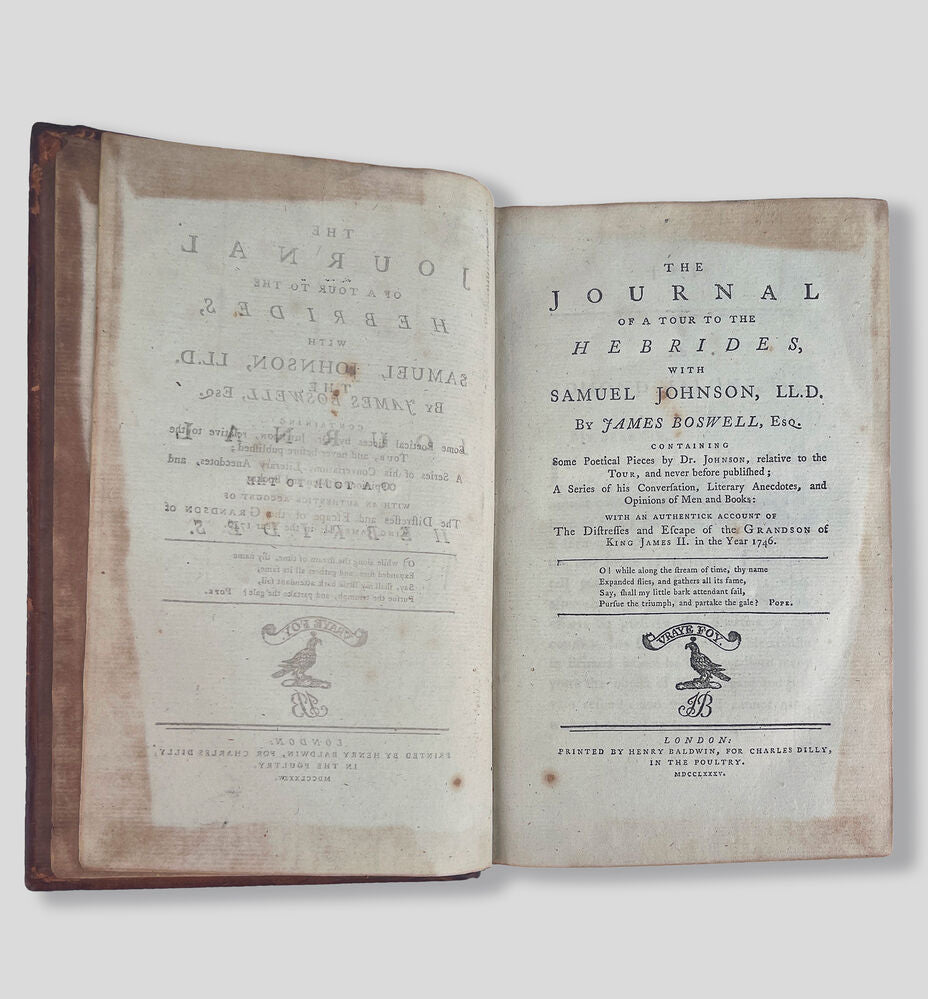 THE
JOURNAL
OF A TOUR TO THE
HEBRIDES,
WITH
SAMUEL JOHNSON, LL.D.
By JAMES BOSWELL, Esq.
CONTAINING
Some Poetical Pieces by Dr. Johnson, relative to the
Tour, and never before publiſhed;
A Series of his Converſation, Literary Anecdotes, and
Opinions of Men and Books:
WITH AN AUTHENTICK ACCOUNT OF
The Diſtreſſes and Eſcape of the Grandson of
King James II. in the Year 1746.
O! while along the ſtream of time, thy name
Expanded flies, and gathers all its fame,
Say, ſhall my little bark attendant ſail,
Purſue the triumph, and partake the gale? Pope.
VRAYE FOY.
JB
LONDON:
PRINTED BY HENRY BALDWIN, FOR CHARLES DILLY,
IN THE POULTRY.
MDCCLXXXV.